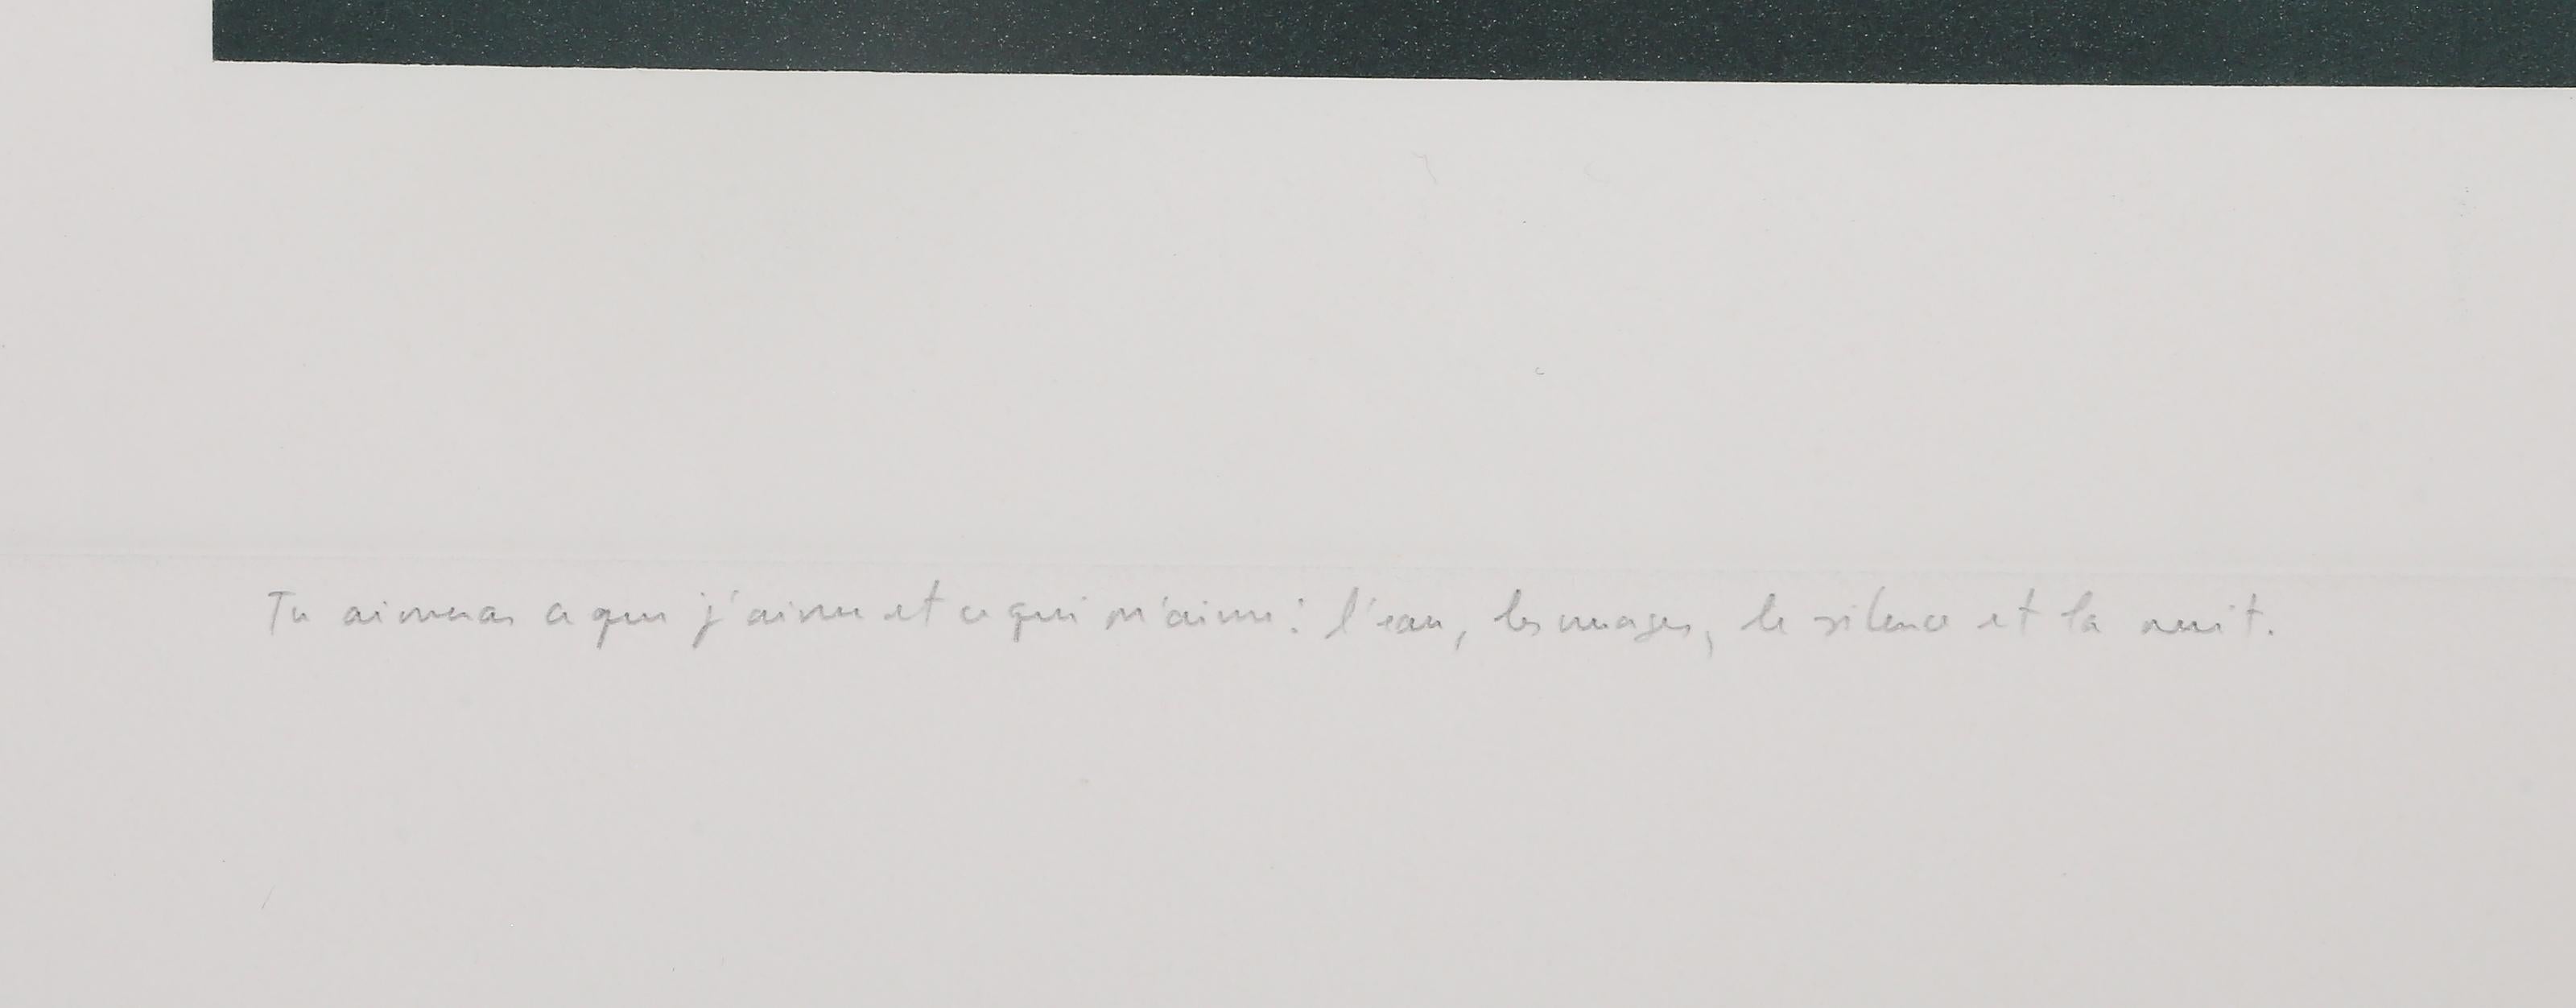 Tu aimeras ce que j'aime et ce qui m'aime : l'eau, les nuages, le silence et la nuit.